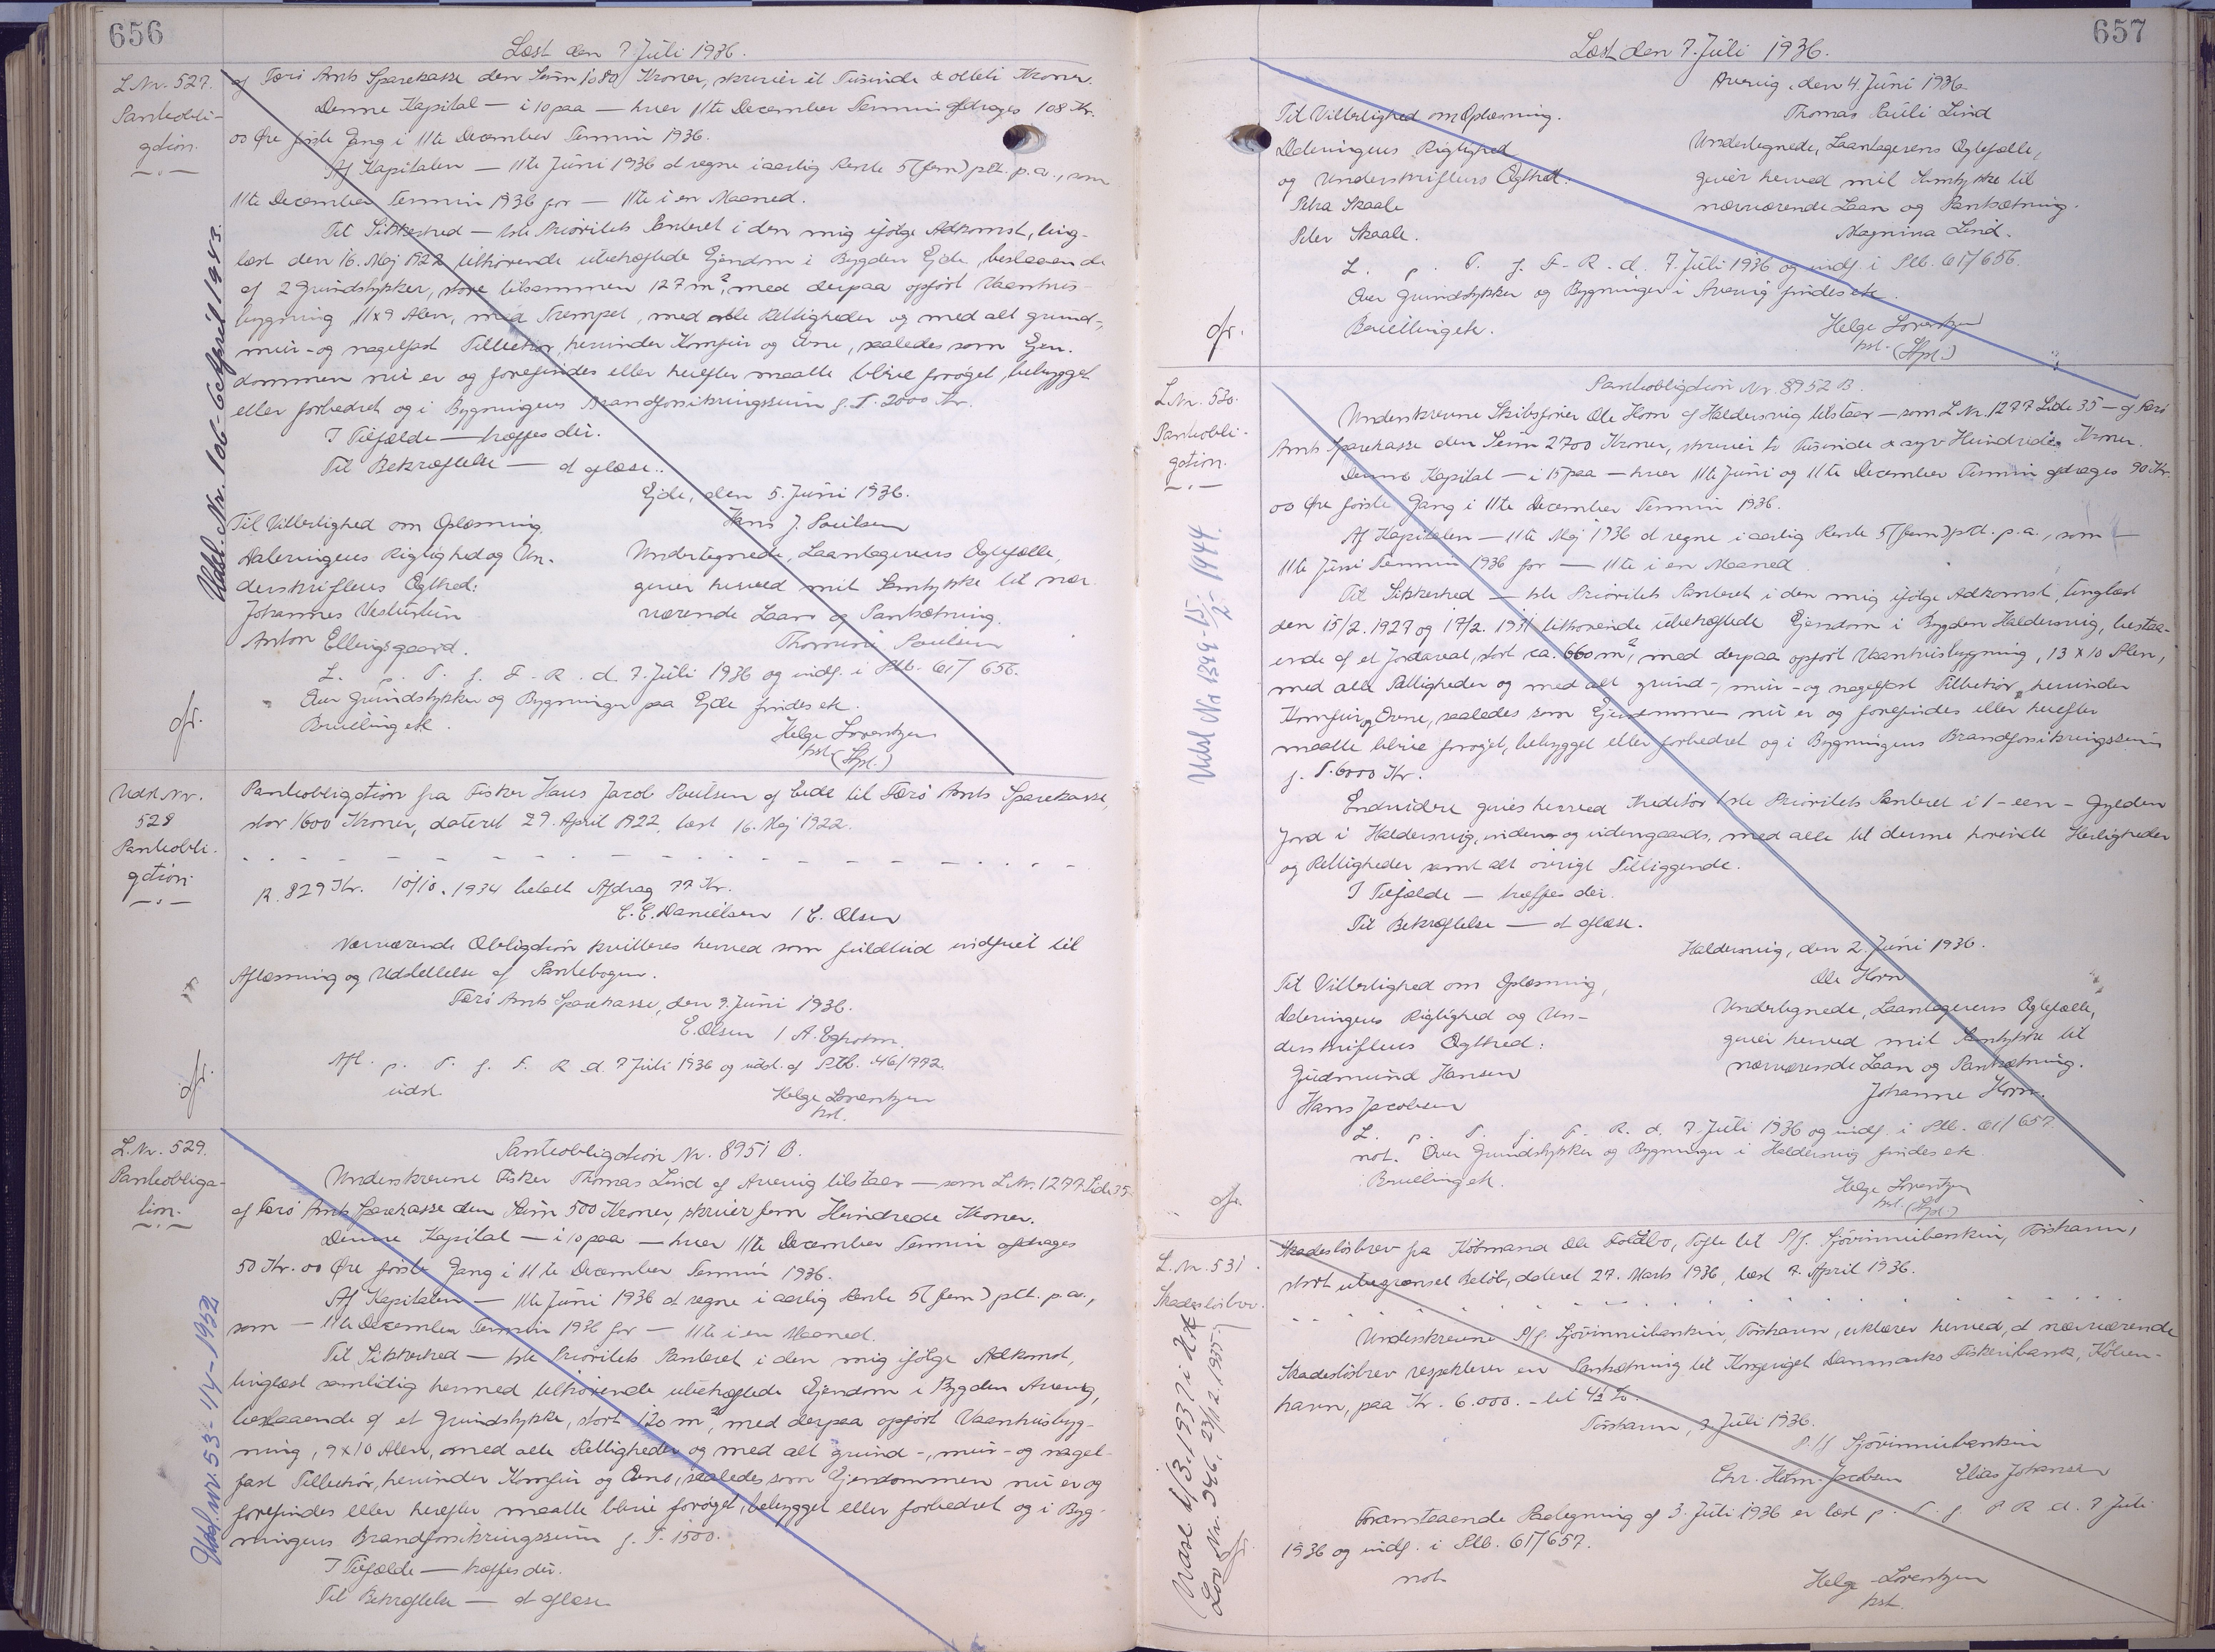 656
Læst den 7. Juli 1936.
L.Nr. 527.
Panteobli-
gation.
af Færø Amts Sparekasse den Sum 1080 Kroner, skriver et Tusinde & otteti Kroner.
Denne Kapital — i 10 paa — hver 11te December Termin afdrages 108 Kr.
00 Øre første Gang i 11te December Termin 1936.
Af Kapitalen — 11te Juni 1936 at regne i aarlig Rente 5 (fem) pCt. p.a., som
11te December Termin 1936 for — 11te i en Maaned.
Til Sikkerhed — 1ste Prioritets Panteret i den mig ifølge Adkomst, ting-
læst den 16. Maj 1922 tilhørende ubehæftede Ejendom i Bygden Ejde, bestaaende
af 2 Grundstykker, store tilsammen 127 m², med derpaa opført Vaanhus-
bygning, 11x9 Alen, med Trempel, med alle Rettigheder og med alt grund-,
mur- og nagelfast Tilbehør, herunder Komfur og Ovne, saaledes som Ejen-
dommen nu er og forefindes eller herefter maatte blive forøget, bebygget
eller forbedret og i Bygningens Brandforsikringssum f.T. 2000 Kr.
I Tilfælde — træffes der.
Til Bekræftelse — at aflæse.
Ejde, den 5. Juni 1936.
Hans J. Poulsen
Til Vitterlighed om Oplæsning,
Dateringens Rigtighed og Un-
derskriftens Ægthed:
Johannes Vesturtun
Anton Ellingsgaard.
Undertegnede, Laantagerens Ægtefælle,
giver herved mit Samtykke til nær-
værende Laan og Pantsætning.
Thomine Poulsen
L. p. T. f. F. R. d. 7. Juli 1936 og indf. i Ptb. 61/656.
Over Grundstykker og Bygninger paa Ejde findes etc.
Bevilling etc.
Helge Lorentzen
kst. (Spl.)
Udsl. Nr. 106 - 6 April 1943.
Udsl. Nr.
528
Panteobli-
gation.
Panteobligation fra Fisker Hans Jacob Poulsen af Eide til Færø Amts Sparekasse,
stor 1600 Kroner, dateret 29. April 1922, læst 16. Maj 1922.
R. 829 Kr. 10/10. 1934 betalt Afdrag 77 Kr.
E.E. Danielsen / E. Olsen
Nærværende Obligation kvitteres herved som fuldtud indfriet til
Aflæsning og Udslettelse af Pantebogen.
Færø Amts Sparekasse, den 9. Juni 1936.
E. Olsen / A.
Afl. p. T. f. F. R. d. 7 Juli 1936 og udsl. af Ptb. 46/772.
udst.
Helge Lorentzen
kst.
L.Nr. 529.
Panteobliga-
tion.
Panteobligation Nr. 8951 B.
Underskrevne Fisker Thomas Lind af Avevig tilstaar — som L.Nr. 1277 Side 35
af Færø Amts Sparekasse den Sum 500 Kroner, skriver fem Hundrede Kroner.
Denne Kapital — i 10 paa — hver 11te December Termin afdrages
50 Kr. 00 Øre første Gang i 11te December Termin 1936.
Af Kapitalen — 11te Juni 1936 at regne i aarlig Rente 5 (fem) pCt. p.a.,
som — 11te December Termin 1936 for — 11te i en Maaned.
Til Sikkerhed — 1ste Prioritets Panteret i den mig ifølge Adkomst,
tinglæst samtidig hermed tilhørende ubehæftede Ejendom i Bygden Avevig,
bestaaende af et Grundstykke, stort 120 m², med derpaa opført Vaanhusbyg-
ning, 9x10 Alen, med alle Rettigheder og med alt grund-, mur- og nagel-
fast Tilbehør, herunder Komfur og Ovne, saaledes som Ejendommen nu er og
forefindes eller herefter maatte blive forøget, bebygget eller forbedret og i Byg-
ningens Brandforsikringssum f.T. 1500.
I Tilfælde — træffes der.
Til Bekræftelse — at aflæse
Udsl. nr. 53 - 14 - 1952
657
Læst den 7. Juli 1936.
Avevig, den 4. Juni 1936.
Thomas Pauli Lind
Til Vitterlighed om Oplæsning.
Dateringens Rigtighed
og Underskriftens Ægthed:
Petra Skaale
Peter Skaale.
Undertegnede, Laantagerens Ægtefælle,
giver herved mit Samtykke til
nærværende Laan og Pantsætning.
Magnina Lind.
L. p. T. f. F. R. d. 7. Juli 1936 og indf. i Ptb. 61/656.
Over Grundstykker og Bygninger i Avevig findes etc.
Bevilling etc.
Helge Lorentzen
kst. (Spl.)
L.Nr. 530.
Panteobli-
gation.
Panteobligation Nr. 8952 B.
Underskrevne Skibsfører Ole Horn af Haldersvig tilstaar — som L.Nr. 1277 Side 35 — af Færø
Amts Sparekasse den Sum 2700 Kroner, skriver to Tusinde & syv Hundrede Kroner.
Denne Kapital — i 15 paa — hver 11te Juni og 11te December Termin afdrages 90 Kr.
00 Øre første Gang i 11te December Termin 1936.
Af Kapitalen — 11te Maj 1936 at regne i aarlig Rente 5 (fem) pCt. p.a., som —
11te Juni Termin 1936 for — 11te i en Maaned.
Til Sikkerhed — 1ste Prioritets Panteret i den mig ifølge Adkomst, tinglæst
den 15/2. 1927 og 17/2. 1931 tilhørende ubehæftede Ejendom i Bygden Haldersvig, bestaa-
ende af et Jordareal, stort ca. 660 m², med derpaa opført Vaanhusbygning, 13 x 10 Alen,
med alle Rettigheder og med alt grund-, mur- og nagelfast Tilbehør, herunder
Komfur og Ovne, saaledes som Ejendommen nu er og forefindes eller herefter
maatte blive forøget, bebygget eller forbedret og i Bygningens Brandforsikringssum
f. T. 6000 Kr.
Endvidere gives herved Kreditor 1ste Prioritets Panteret i 1 - een - Gylden
Jord i Haldersvig, inden- og udengaards, med alle til denne hørende Herligheder
og Rettigheder samt alt øvrigt Tilliggende.
I Tilfælde — træffes der.
Til Bekræftelse — at aflæse.
Haldersvig, den 2. Juni 1936.
Ole Horn
Til Vitterlighed om Oplæsning,
Dateringens Rigtighed og Un-
derskriftens Ægthed:
Gudmund Hansen
Hans Jacobsen
Undertegnede, Laantagerens Ægtefælle,
giver herved mit Samtykke til
nærværende Laan og Pantsætning.
Johanne Horn.
L. p. T. f. F. R. d. 7. Juli 1936 og indf. i Ptb. 61/657.
not. Over Grundstykker og Bygninger i Haldersvig findes etc.
Bevilling etc.
Helge Lorentzen
kst. (Spl.)
Udsl Nr 1399 - 15/2 - 1944.
L.Nr. 531.
Skadesløsbrev.
Skadesløsbrev fra Købmand Ole Toftte til P/f. Sjóvinnubankin, Tórshavn,
stort ubegrænset Beløb, dateret 27. Marts 1936, læst 7. April 1936.
Underskrevne P/f. Sjóvinnubankin, Tórshavn, erklærer herved, at nærværende
Skadesløsbrev respekterer en Pantsætning til Kongeriget Danmarks Fiskeribank, Køben-
havn, paa Kr. 6.000.- til 4½ %.
Tórshavn, 3. Juli 1936.
P/f Sjóvinnubankin
Chr. Holm-Jacobsen Elias Johansen
Foranstaaende Paategning af 3. Juli 1936 er læst p. T. f. F R d. 7 Juli
1936 og indf. i Ptb. 61/657.
not.
Helge Lorentzen
kst.